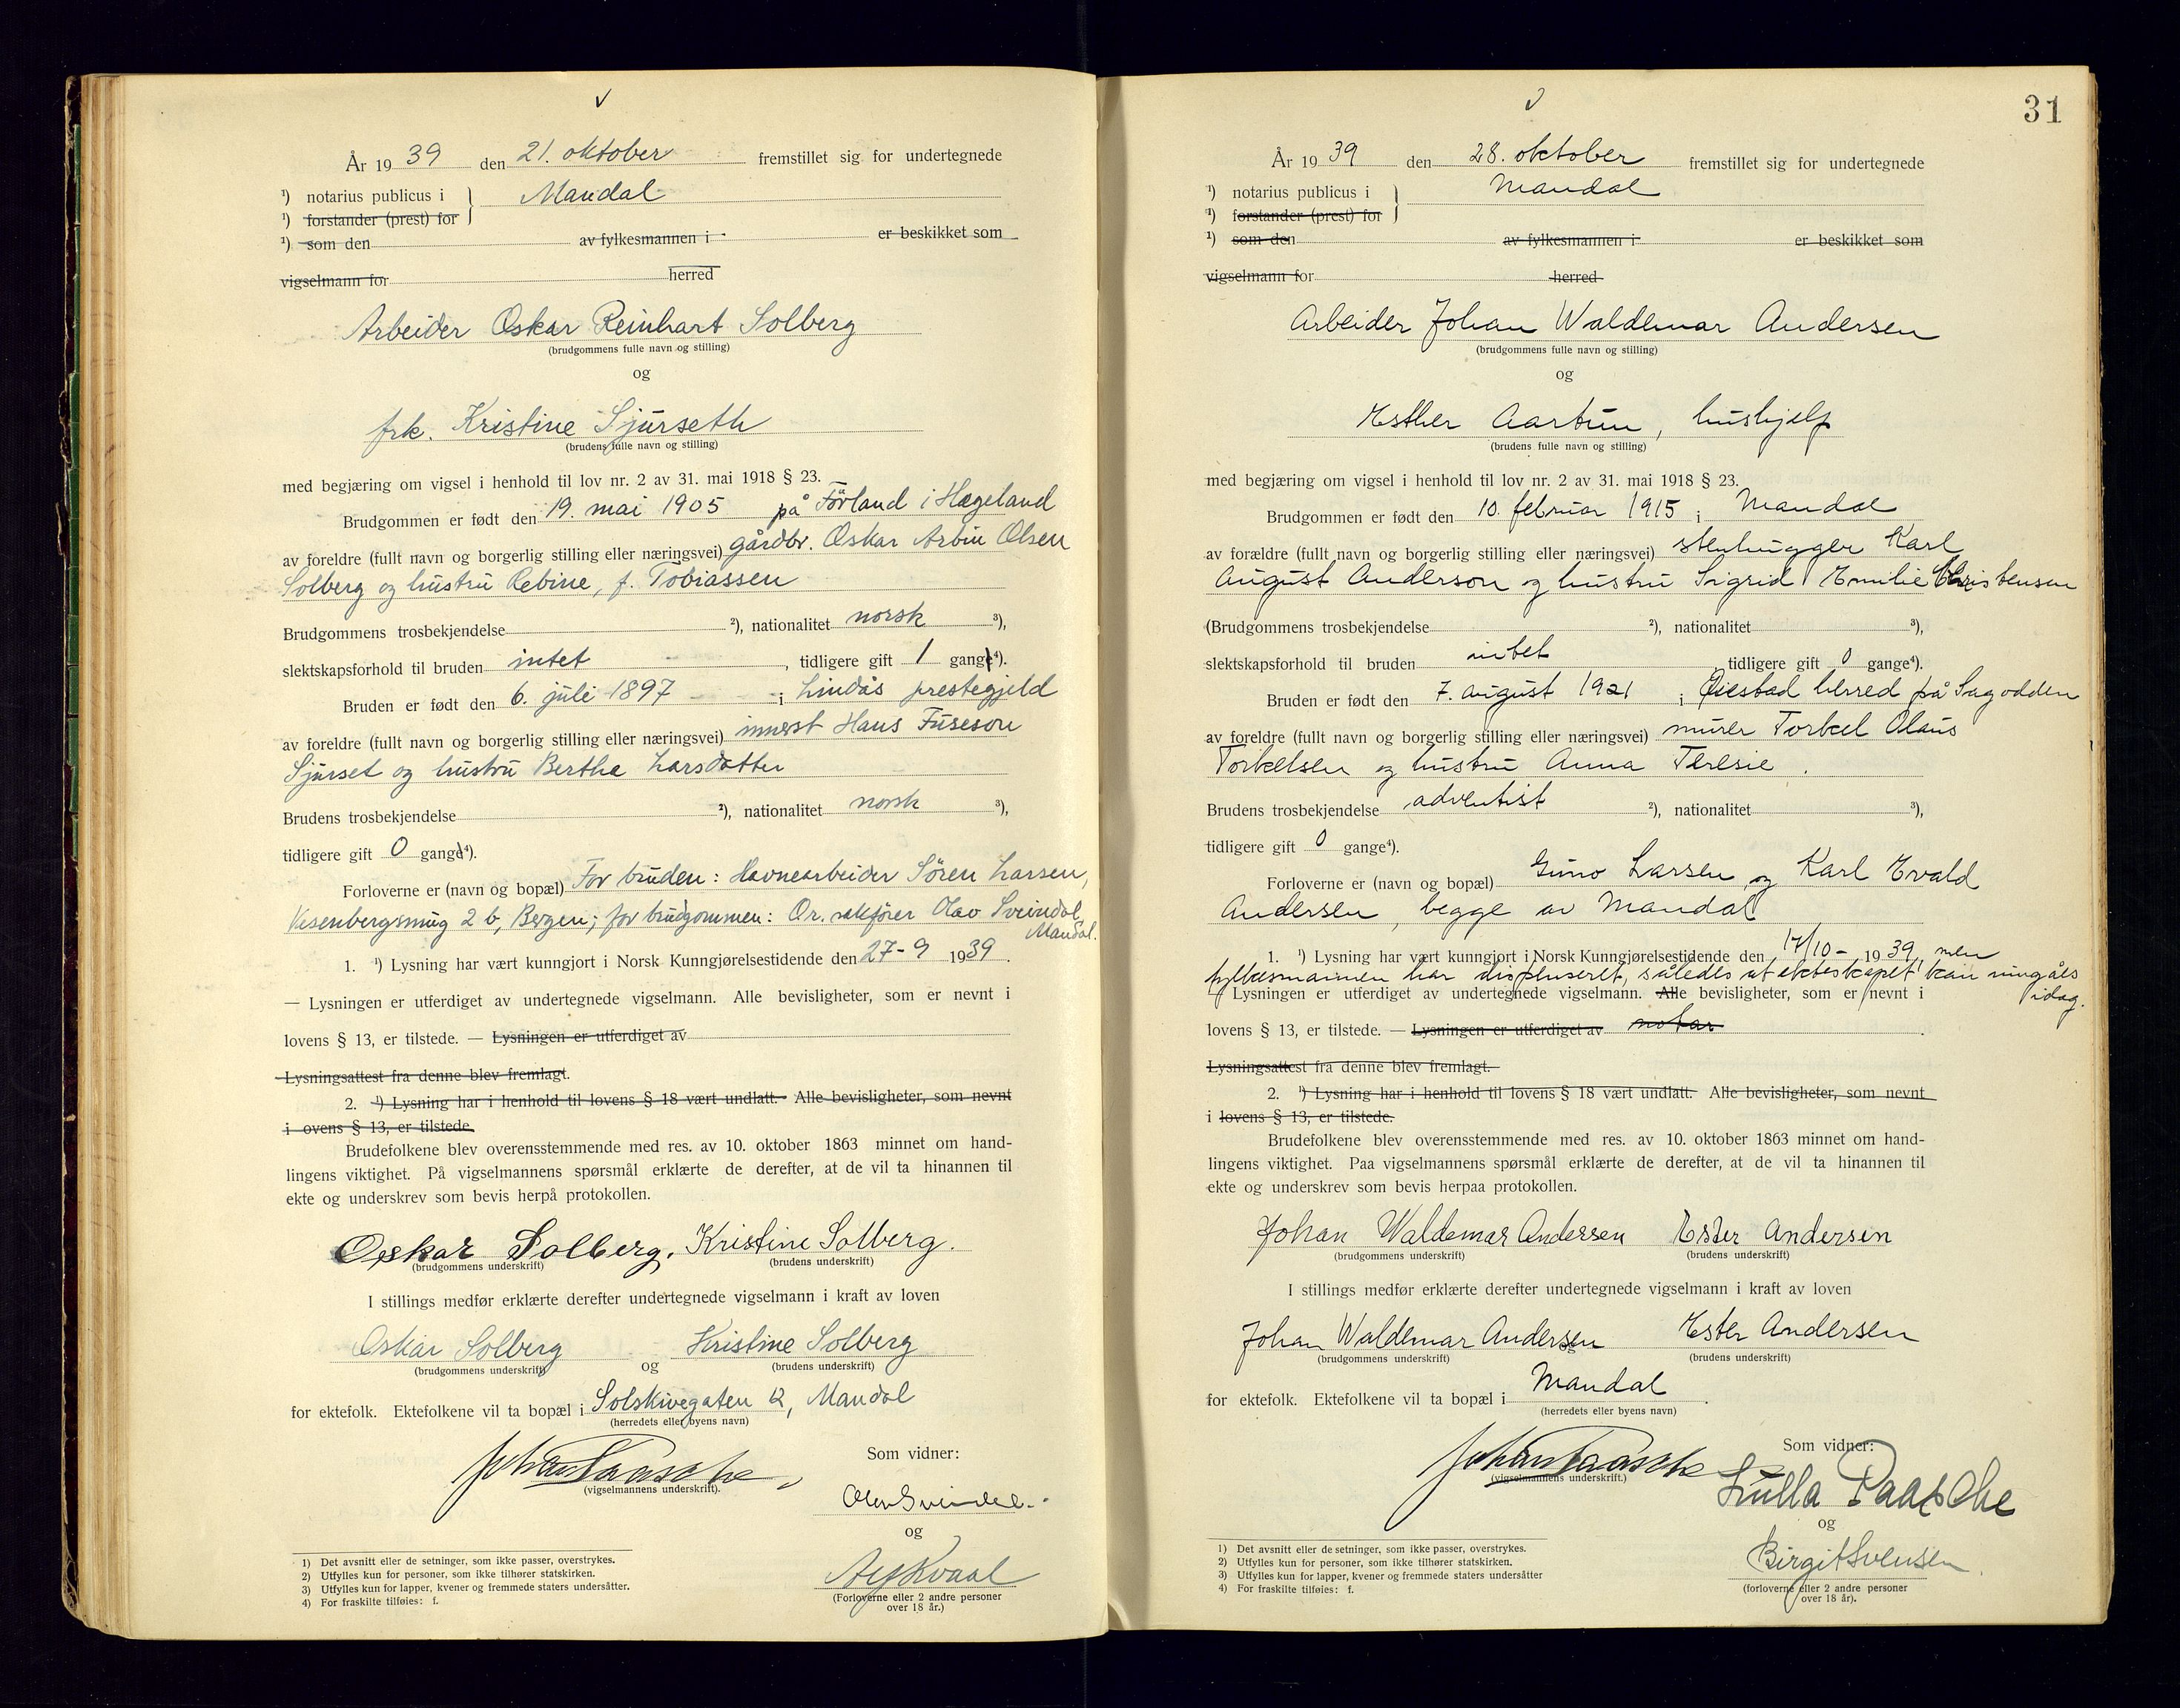 År 1939 den 21. oktober fremstillet sig for undertegnede
¹) notarius publicus i Mandal
¹) forstander (prest) for
¹) som den av fylkesmannen i er beskikket som
vigselmann for herred
Arbeider Oskar Reinhart Solberg
(brudgommens fulle navn og stilling)
og
frk. Kristine Sjurseth
(brudens fulle navn og stilling)
med begjæring om vigsel i henhold til lov nr. 2 av 31. mai 1918 § 23.
Brudgommen er født den 19. mai 1905 på Förland i Hægeland
av foreldre (fullt navn og borgerlig stilling eller næringsvei) gårdbr. Oskar Arbin Olsen
Solberg og hustru Rebine, f. Tobiassen
Brudgommens trosbekjendelse ²), nationalitet norsk ³),
slektskapsforhold til bruden intet, tidligere gift 1 gang⁴).
Bruden er født den 6. juli 1897 i Lindås prestegjeld
av foreldre (fullt navn og borgerlig stilling eller næringsvei) innerst Hans Fuseson
Sjurset og hustru Bertha Larsdatter
Brudens trosbekjendelse ²), nationalitet norsk ³),
tidligere gift 0 gang⁴).
Forloverne er (navn og bopæl) For bruden: Havnearbeider Sören Larsen,
Vesenbergsmug 2 b, Bergen; for brudgommen: Or. sakfører Olav Sveindal
Mandal.
1. ¹) Lysning har vært kunngjort i Norsk Kunngjørelsestidende den 27-9 1939.
— Lysningen er utferdiget av undertegnede vigselmann. Alle bevisligheter, som er nevnt i
lovens § 13, er tilstede. — Lysningen er utferdiget av
Lysningsattest fra denne blev fremlagt.
2. ¹) Lysning har i henhold til lovens § 18 vært undlatt. Alle bevisligheter, som nevnt
i ovens § 13, er tilstede.
Brudefolkene blev overensstemmende med res. av 10. oktober 1863 minnet om hand-
lingens viktighet. På vigselmannens spørsmål erklærte de derefter, at de vil ta hinannen til
ekte og underskrev som bevis herpå protokollen.
Oskar Solberg. Kristine Solberg.
(brudgommens underskrift) (brudens underskrift)
I stillings medfør erklærte derefter undertegnede vigselmann i kraft av loven
Oskar Solberg og Kristine Solberg
(brudgommens underskrift) (brudens underskrift)
for ektefolk. Ektefolkene vil ta bopæl i Solskivegaten 12, Mandal
(herredets eller byens navn)
Som vidner:
Johan Paasche
(vigselmannens underskrift).
Olav Sveindal
og
Kvaal
(Forloverne eller 2 andre personer
over 18 år.)
1) Det avsnitt eller de setninger, som ikke passer, overstrykes.
2) Utfylles kun for personer, som ikke tilhører statskirken.
3) Utfylles kun for lapper, kvener og fremmede staters undersåtter.
4) For fraskilte tilføies: f.
31
År 1939 den 28. oktober fremstillet sig for undertegnede
¹) notarius publicus i Mandal
¹) forstander (prest) for
¹) som den av fylkesmannen i er beskikket som
vigselmann for herred
Arbeider Johan Waldemar Andersen
(brudgommens fulle navn og stilling)
og
Esther Aartun, hushjelp
(brudens fulle navn og stilling)
med begjæring om vigsel i henhold til lov nr. 2 av 31. mai 1918 § 23.
Brudgommen er født den 10. februar 1915 i Mandal
av forældre (fullt navn og borgerlig stilling eller næringsvei) stenhugger Karl
August Anderson og hustru Sigrid Emilie Christensen
(Brudgommens trosbekjendelse ²), nationalitet ³),
slektskapsforhold til bruden intet, tidligere gift 0 gange⁴).
Bruden er født den 7. august 1921 i Øiestad herred på Sagodden
av foreldre (fullt navn og borgerlig stilling eller næringsvei) murer Torkel Olaus
Torkelsen og hustru Anna Teresie.
Brudens trosbekjendelse adventist ²), nationalitet ³),
tidligere gift 0 gange⁴).
Forloverne er (navn og bopæl) Guno Larsen og Karl Evald
Andersen, begge av Mandal
1. ¹) Lysning har vært kunngjort i Norsk Kunngjørelsestidende den 17/10 - 1939, men
fylkesmannen har dispensert, således at ekteskapet kan inngåes
idag.
Lysningen er utferdiget av undertegnede vigselmann. Alle bevisligheter, som er nevnt i
lovens § 13, er tilstede. — Lysningen er utferdiget av notar.
Lysningsattest fra denne blev fremlagt.
2. ¹) Lysning har i henhold til lovens § 18 vært undlatt. Alle bevisligheter, som nevnt
i lovens § 13, er tilstede.
Brudefolkene blev overensstemmende med res. av 10. oktober 1863 minnet om hand-
lingens viktighet. Paa vigselmannens spørsmål erklærte de derefter, at de vil ta hinannen til
ekte og underskrev som bevis herpaa protokollen.
Johan Waldemar Andersen Ester Andersen
(brudgommens underskrift) (brudens underskrift)
I stillings medfør erklærte derefter undertegnede vigselmann i kraft av loven
Johan Waldemar Andersen Ester Andersen
(brudgommens underskrift) (brudens underskrift)
for ektefolk. Ektefolkene vil ta bopæl i Mandal.
(herredets eller byens navn)
Som vidner:
Johan Paasche
(vigselmannens underskrift.)
Lulla Paasche
og
Birgit Svensen
(forloverne eller 2 andre personer
over 18 år).
1) Det avsnitt eller de setninger, som ikke passer, overstrykes.
2) Utfylles kun for personer, som ikke tilhører statskirken.
3) Utfylles kun for lapper, kvener og fremmede staters undersåtter
4) For fraskilte tilføies: f.